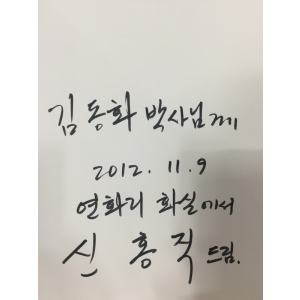 김동화 박사님께
2012. 11. 9
연화리 화실에서
신 홍 직 드림.